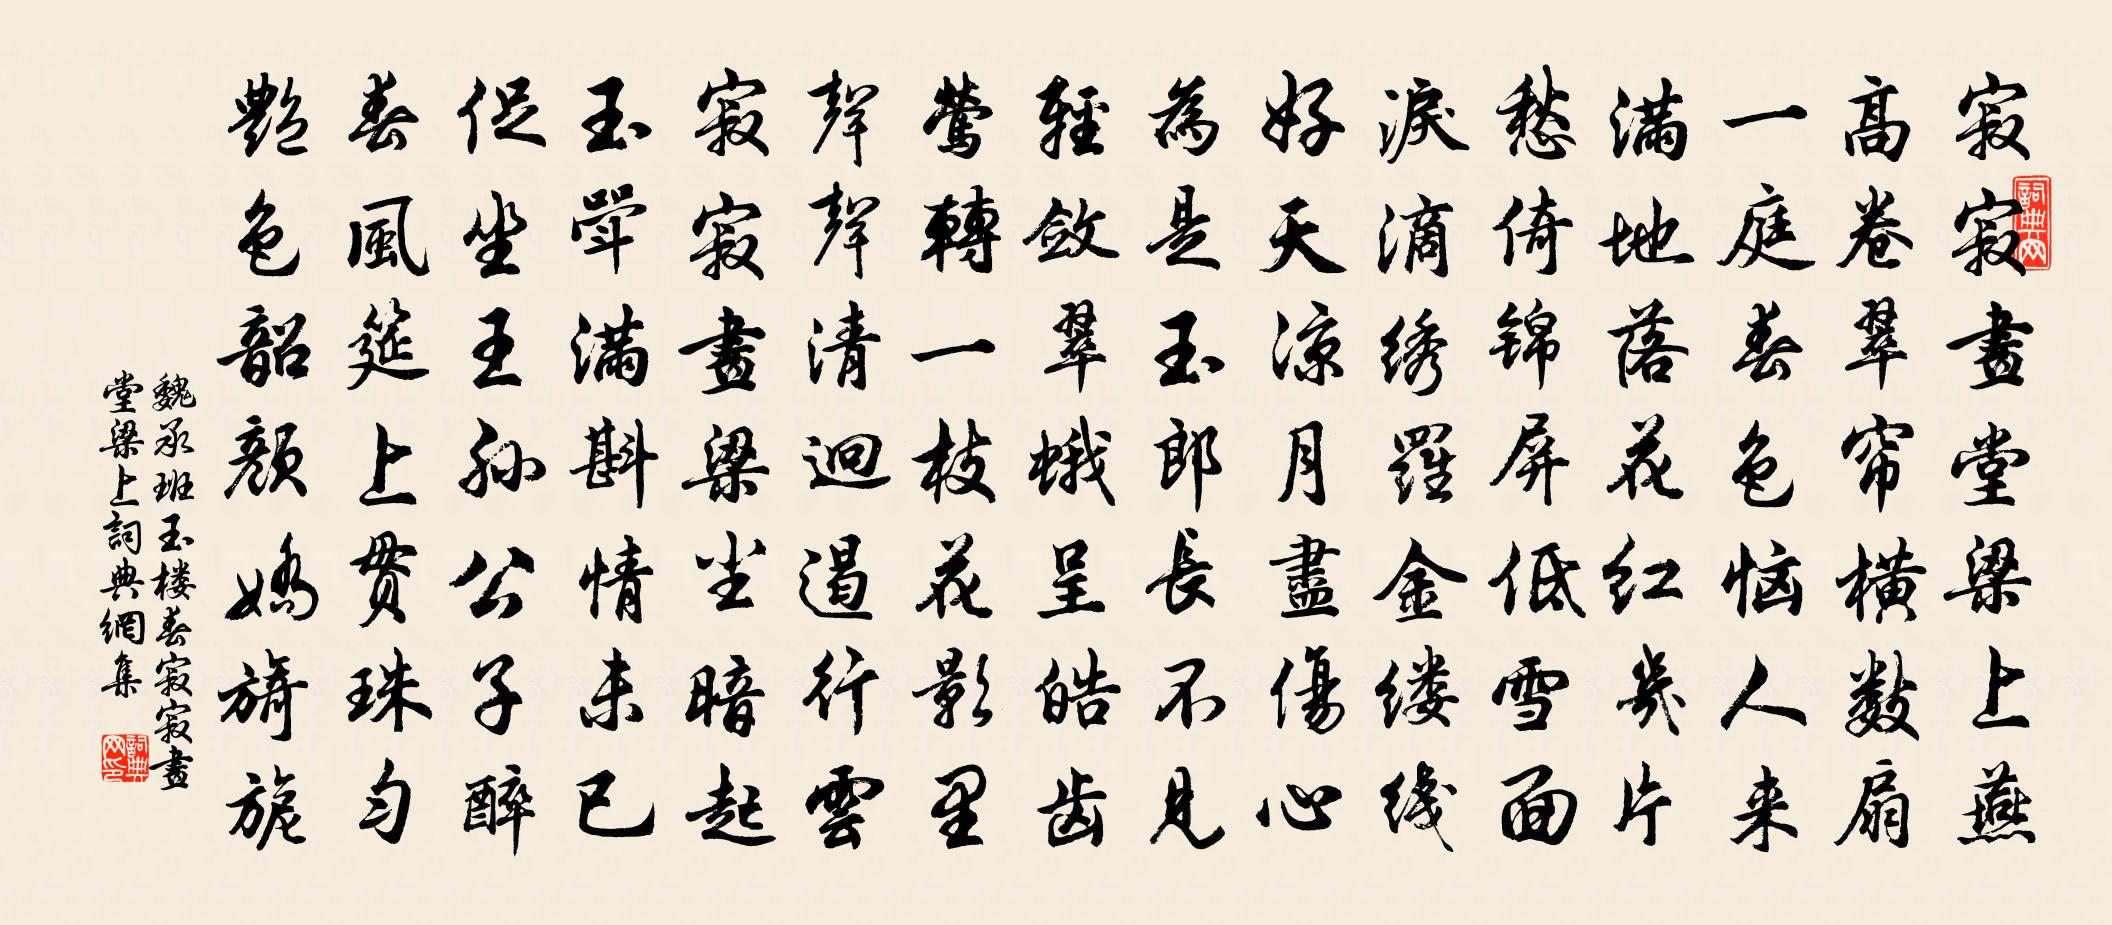 寂寂畫堂梁上燕
高卷翠帘横數扇
一庭春色恼人来
滿地落花红幾片
愁倚锦屏低雪面
淚滴绣羅金缕线
好天凉月盡傷心
為是玉郎長不見
輕斂翠蛾呈皓齿
鶯轉一枝花影里
聲聲清迥遏行雲
寂寂畫梁尘暗起
玉斝滿斟情未已
促坐王孙公子醉
春風筵上贯珠匀
艷色韶颜嬌旖旎
魏承班玉楼春寂寂畫
堂梁上詞典網集
詞典网
詞典网印